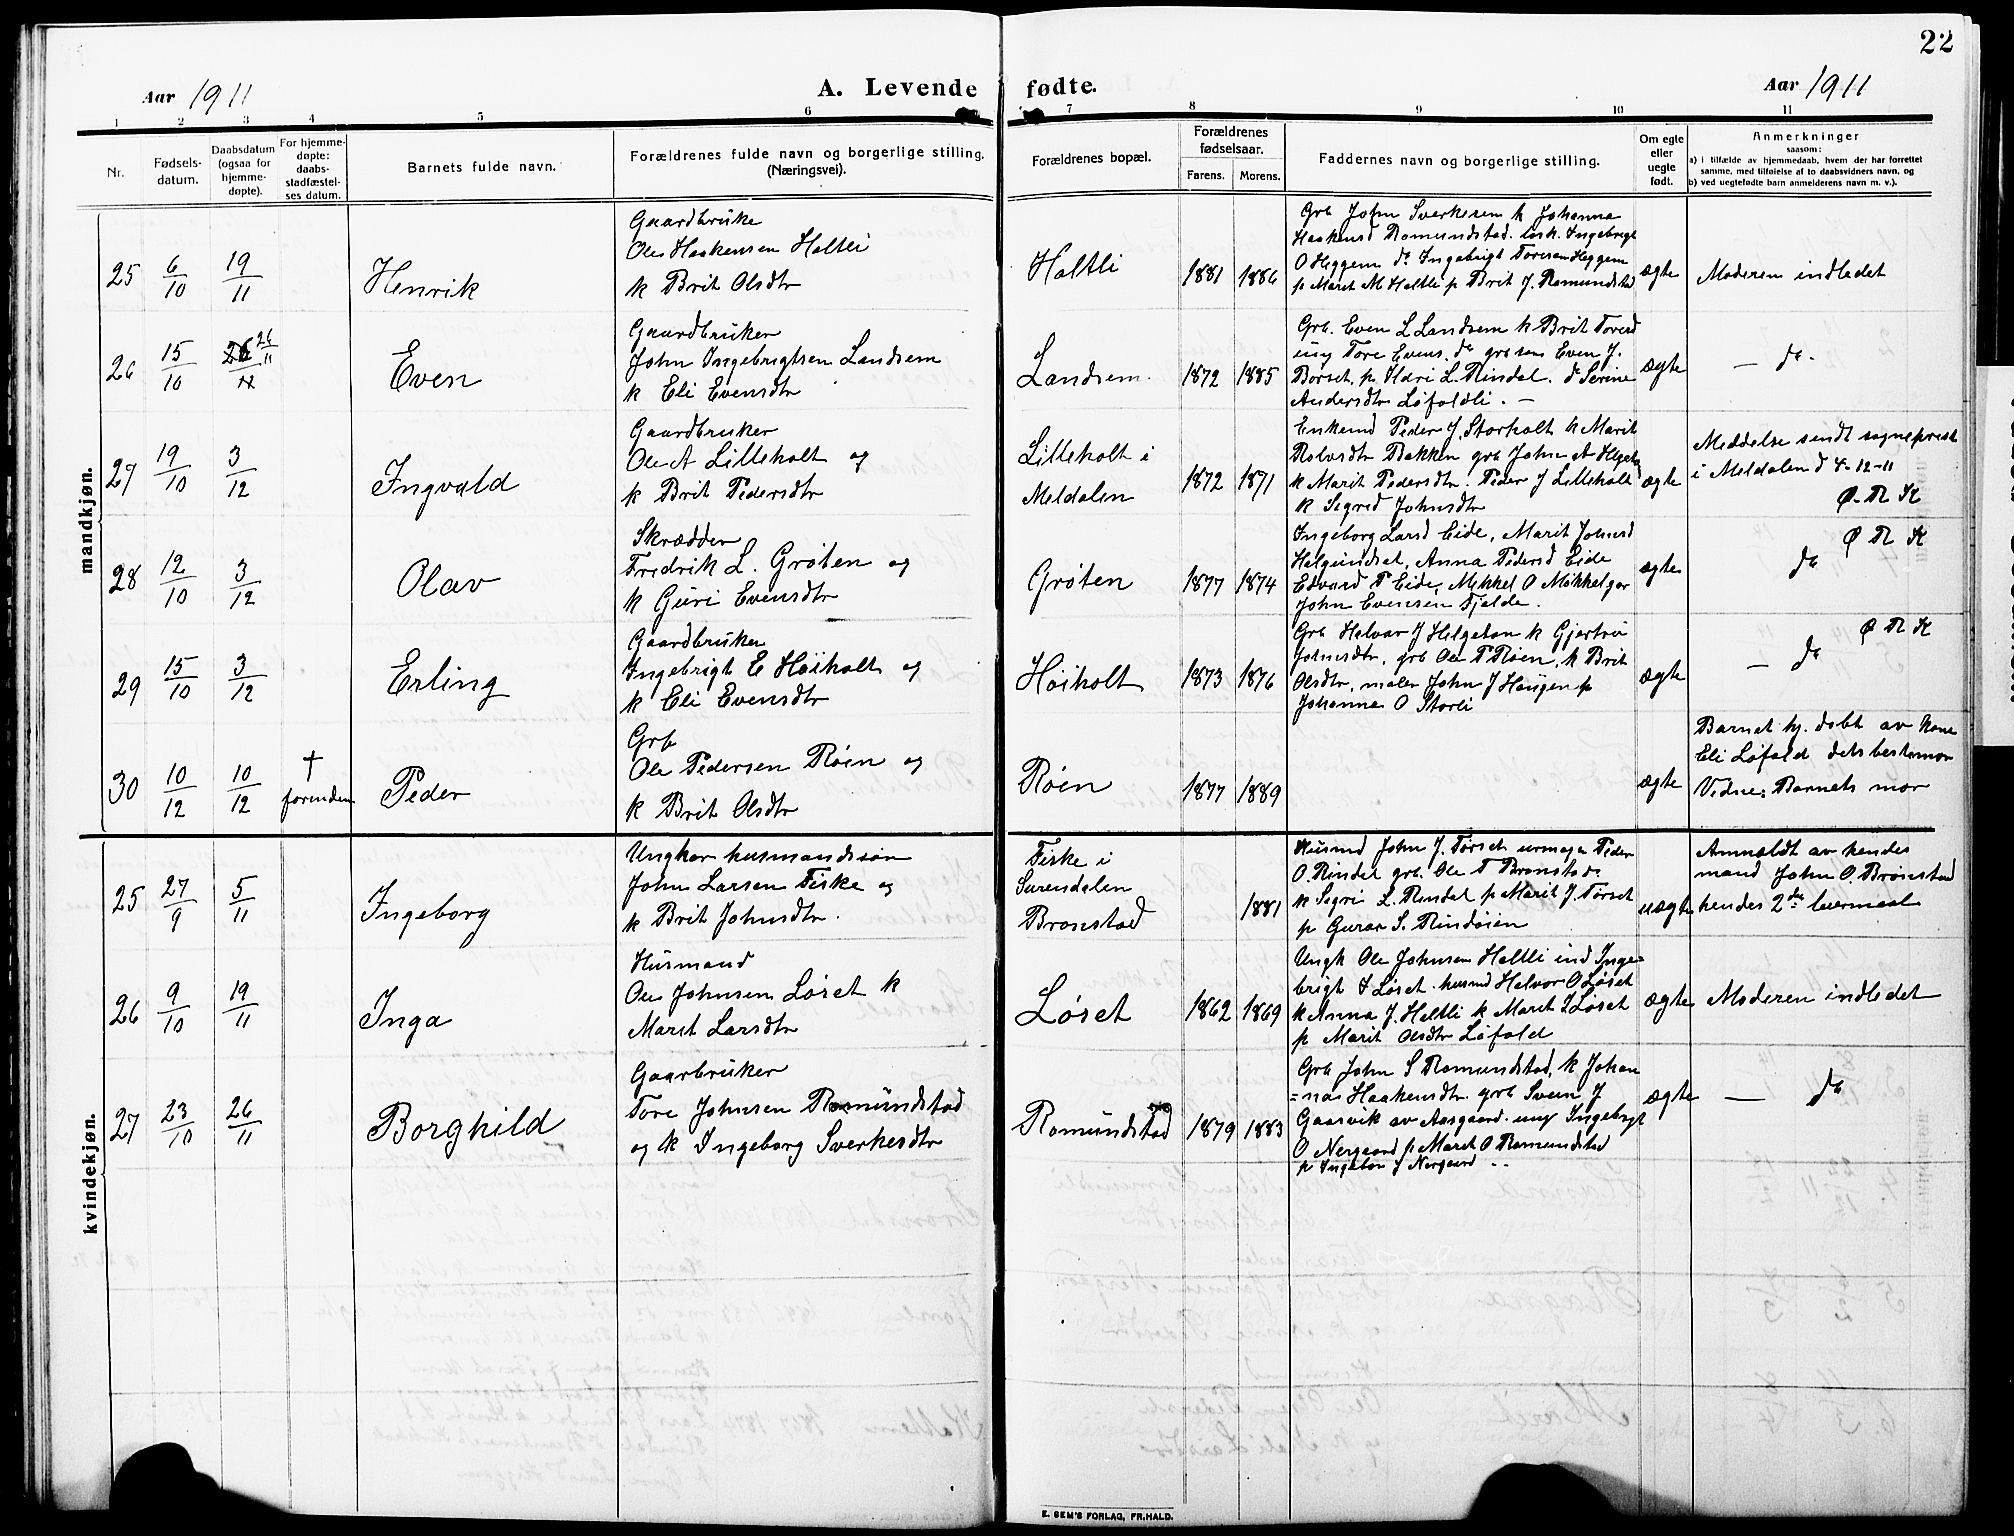 22
Aar 1911
A. Levende fødte.
Aar 1911
1 2 3 4 5 6 7 8 9 10 11
Nr.
Fødsels-
datum.
Daabsdatum
(ogsaa for
hjemme-
døpte).
For hjemme-
døpte:
daabs-
stadfæstel-
ses datum.
Barnets fulde navn.
Forældrenes fulde navn og borgerlige stilling.
(Næringsvei).
Forældrenes bopæl.
Forældrenes
fødselsaar.
Farens. Morens.
Faddernes navn og borgerlige stilling.
Om egte
eller
uegte
født.
Anmerkninger
saasom:
a) i tilfælde av hjemmedaab, hvem der har forrettet
samme, med tilføielse af to daabsvidners navn, og
b) ved uegtefødte barn anmelderens navn m. v.).
mandkjøn.
25 6/10 19/11 Henrik
Gaardbruke
Ole Haakensen Holtli
k Brit Olsdtr
Holtli 1881 1886
Grb John Sverkesen k Johanna
Haakensd Romundstad. Ingebrigt
O Heggem do Ingebrigt Toresen Heggem
p Marit M Holtli p Brit J. Romundstad
ægte
Moderen indledet
26 15/10 26/11 Even
Gaardbruker
John Ingebrigtsen Landsem
k Eli Evensdtr
Landsem 1872 1885
Grb. Even L Landsem k Brit Toresd
ung Tore Evens. do grb søn Even J.
Børset, p Ildri L. Rindal. d Serine
Andersdtr Løfaldli. —
ægte
— do.
27 19/10 3/12 Ingvald
Gaardbruker
Ole A Lilleholt og
k Brit Pedersdtr
Lilleholt i
Meldalen
1872 1871
Enkemd Peder J. Storholt k Marit
Rolvsdtr Bakken grb John A Helgeto
k Marit Pedersdtr. Peder J Lilleholt
k Sigrid Johnsdtr
ægte
Meddelse sendt sogneprest
i Meldalen d 4-12-11
Ø. R K
28 12/10 3/12 Olav
Skrædder
Fredrik L. Grøten og
k Guri Evensdtr
Grøten 1877 1874
Ingeborg Larsd Eide, Marit Johnsd
Helgundset, Anna Pedersd Eide
Edvard P Eide, Mikkel O Mikkelgar
John Evensen Fjelde.
ægte
do
Ø R K
29 15/10 3/12 Erling
Gaardbruker
Ingebrigt E Høiholt og
k Eli Evensdtr
Høiholt 1873 1876
Grb Halvar J Helgeton k Gjertru
Johnsdtr, grb Ole P Røen, k Brit
Olsdtr, maler John J Haugen p
Johanna O Storli
ægte
— do
Ø R K
30 10/12 10/12 †
forinden
Peder
Grb
Ole Pedersen Røen og
k Brit Olsdtr
Røen 1877 1889
ægte
Barnet hj. døbt av kone
Eli Løfald dets bestemor
Vidne: Barnets mor
kvindekjøn.
25 27/9 5/11 Ingeborg
Ungkar husmandssøn
John Larsen Fiske og
k Brit Johnsdtr.
Fiske i
Surendalen
Bronstad
1881
Husmd John J. Tørset urmager Peder
O. Rindal grb. Ole T Bronstad.
k Segri L. Rindal p Marit J. Tørset
p Guraa S. Rindøien
uægte
Anmældt av hendes
mand John O. Brønstad
hendes 2de leiermaal
26 9/10 19/11 Inga
Husmand
Ole Johnsen Løset k
Marit Larsdtr
Løset 1862 1869
Ungk Ole Johnsen Holtli ind Inge=
brigt Løset. husmd Halvor O Løset
k Anna J. Holtli k Marit Løset
p Marit Olsdtr Løfald
ægte
Moderen indledet
27 23/10 26/11 Borghild
Gaarbruker
Tore Johnsen Romundstad
og k Ingeborg Sverkesdtr
Romundstad 1879 1883
Grb John S Romundstad, k Johan
=na Haakensdtr. grb Svein J
Gaasvik av Aasgaard. ung Ingebrgt
O Nergaard p Marit O Romundstad
p Ingebor J Nergaard
ægte
— do
E. SEM'S FORLAG, FR.HALD.